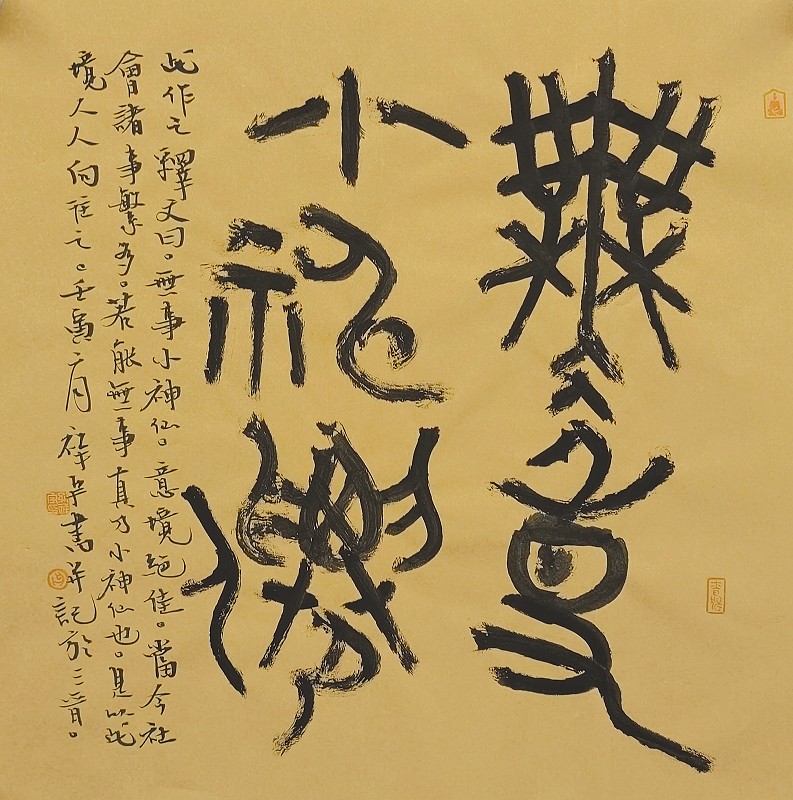 無事
小神僊
此作之釋文曰。無事小神仙。意境絕佳。當今社
會諸事繁多。若能無事真乃小神仙也。是以此
境人人向往之。壬寅二月 書并記於三晉。